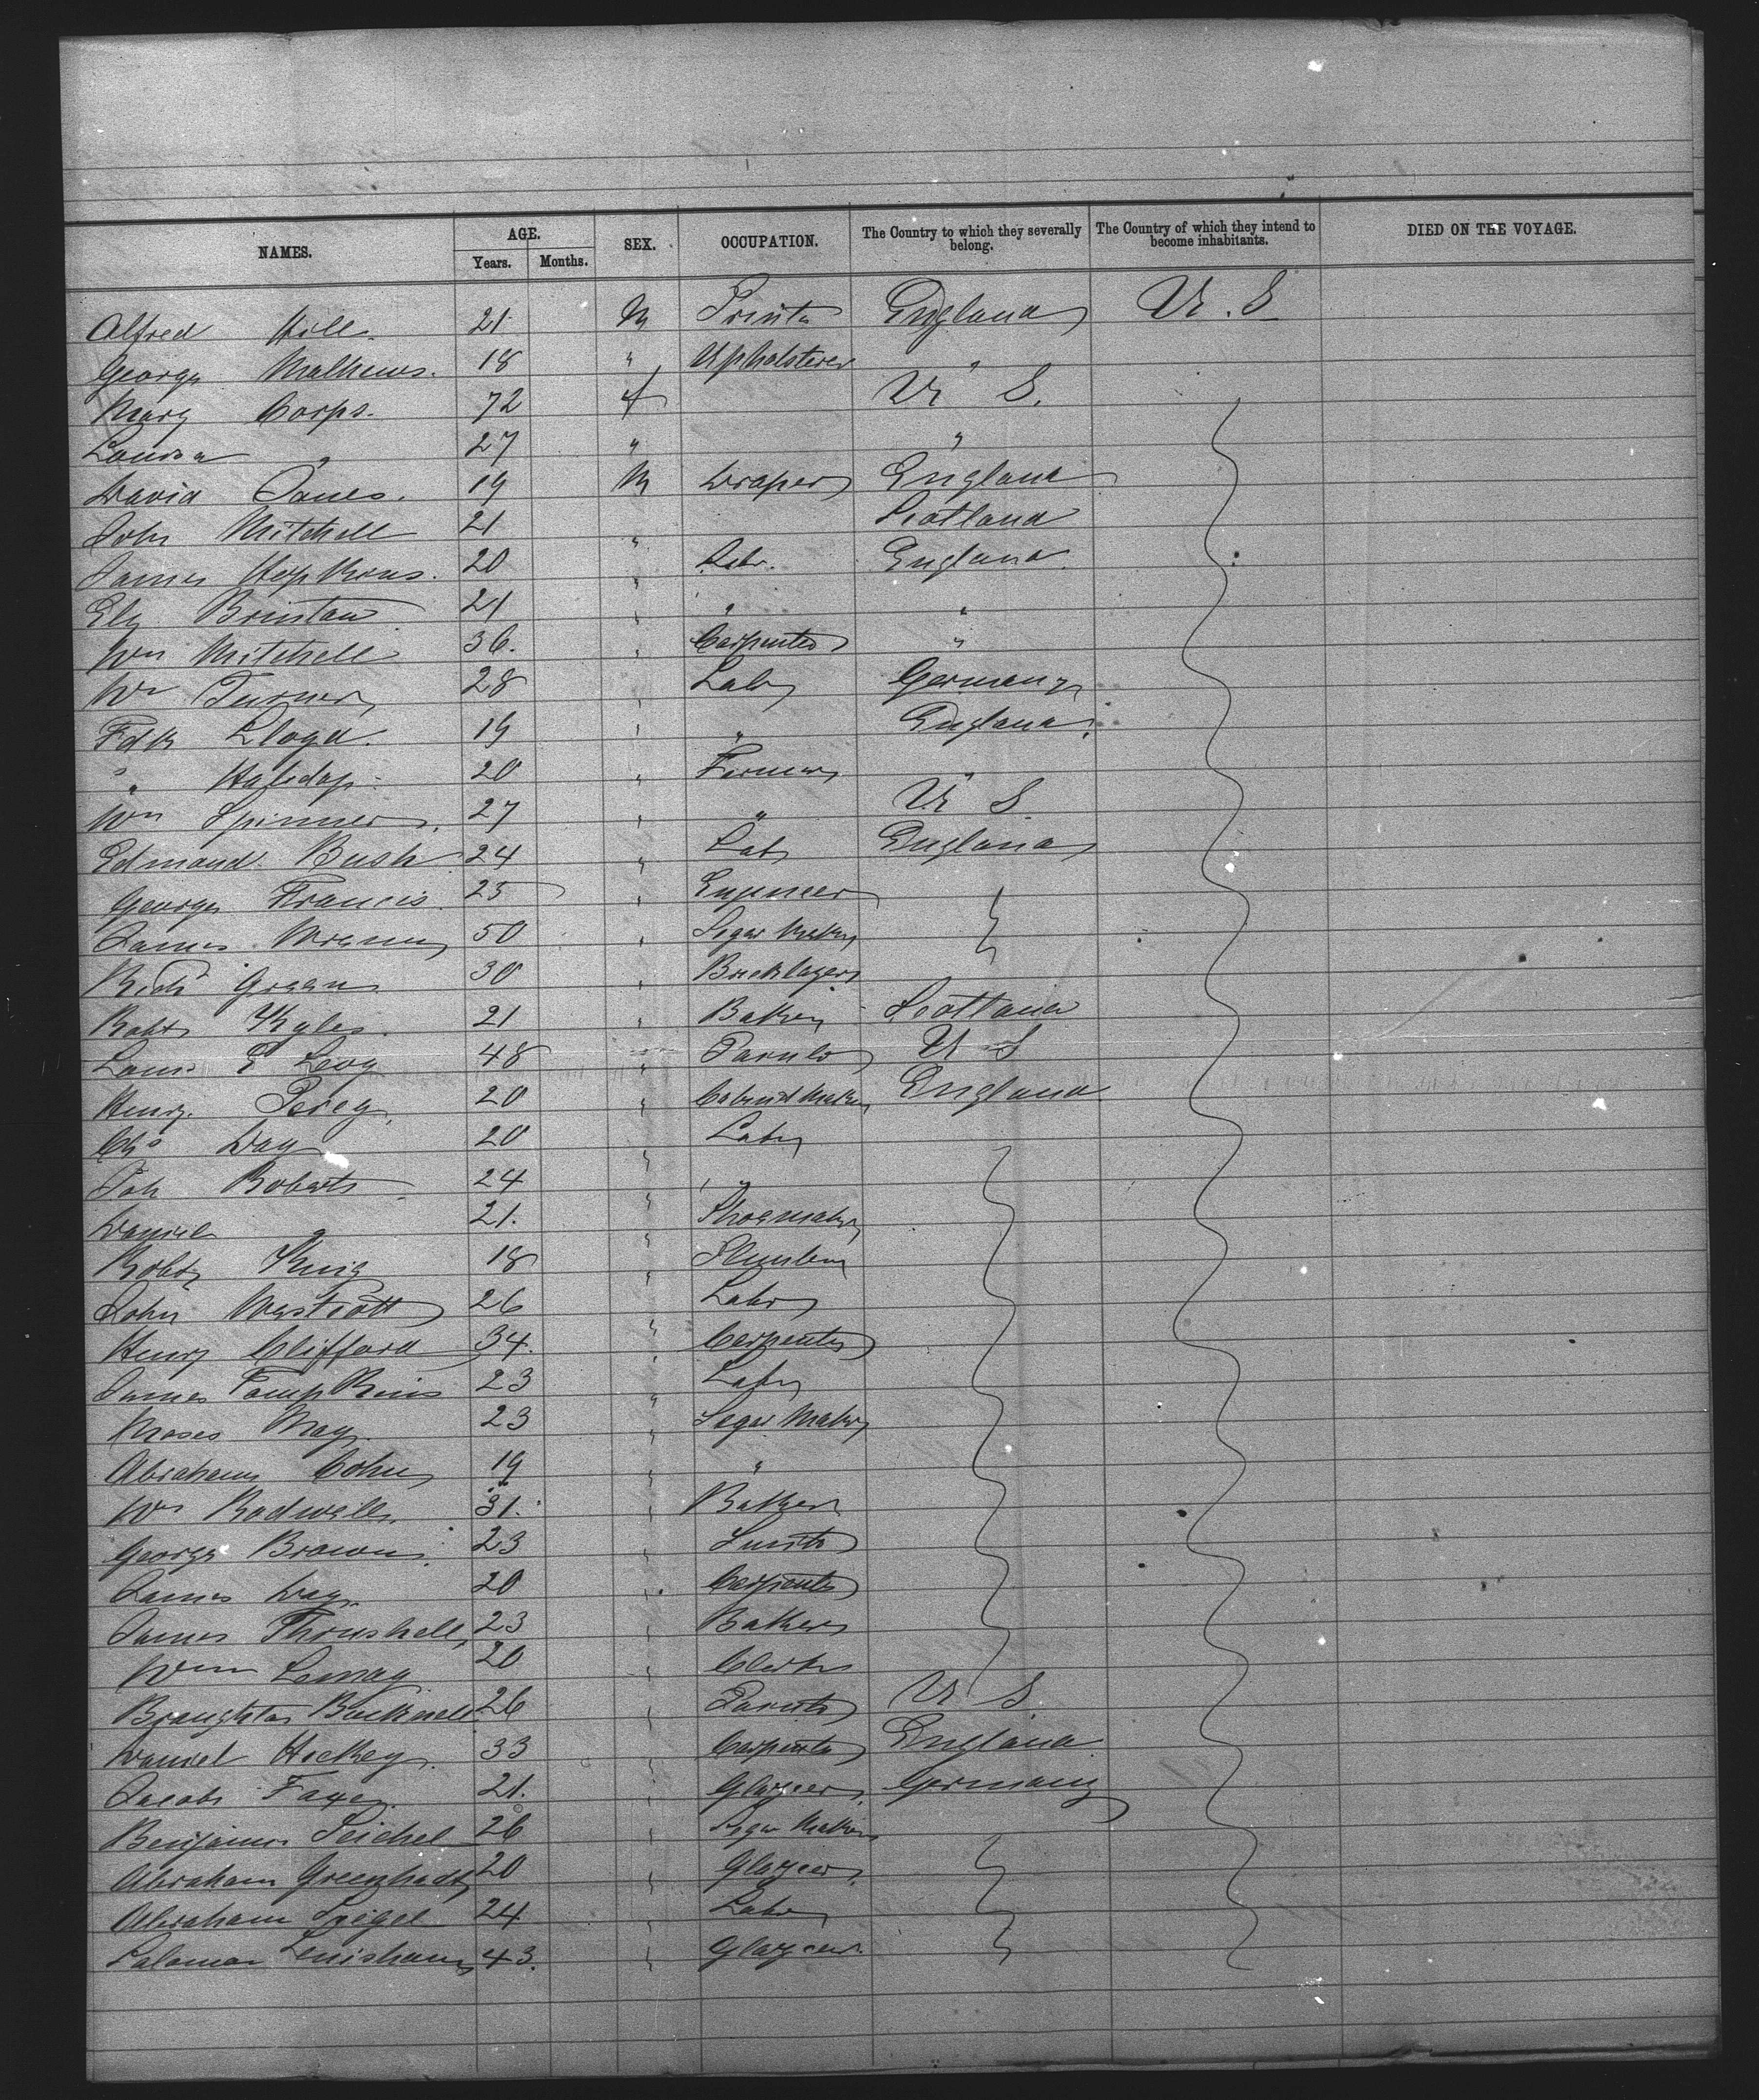 NAMES. AGE. Years. Months. SEX. OCCUPATION. The Country to which they severally belong. The Country of which they intend to become inhabitants. DIED ON THE VOYAGE.
Alfred Hill. 21 M Printer England U.S
George Mathews. 18 " Upholsterer "
Mary Corps. 72 f U S.
Louisa " 27 " "
David Jones. 19 M Draper England
John Mitchell 21 " Scotland
James Hopkins. 20 " Labr. England
Ely Brinton 21 " " "
Wm Mitchell 36. " Carpenter "
Wm Turner 28 " Labr Germany
Fdk Lloyd. 19 " " England
" 20 " Farmer "
Wm Spinner. 27 " " U S
Edmand Bush 24 " Labr England
George Francis 25 " Engineer
James 50 " Segar Maker
Richd Green 30 " Bricklayer
Robt Kyles. 21 " Baker Scotland
Louis Levy 48 " U S
Henry Percy 20 " Cabinet Maker England
Chs Day 20 " Labr
Joh Roberts 24 " "
Daniel " 21. " Shoemaker
Robt King 18 " Plumber
John Westcott 26 " Labr
Henry Clifford 34. " Carpenter
James Tompkins 23 " Labr
Moses May. 23 " Segar Maker
Abraham Cohn 19 " "
Wm Rodwell. 31. " Baker
George Brown. 23 "
James Day. 20 " Carpenter
James Thrushell, 23 " Baker
Wm Lemay 20 " Clerk
Broughton Bucknell 26 " U S
Daniel Hickey. 33 " Carpenter England
Jacob 21. " Glazier. Germany
Benjamin Seichel 26 " Segar Maker
Abraham 20 " Glazier.
Abraham Seigel 24 " Labr
Soloman 43. " Glazier.